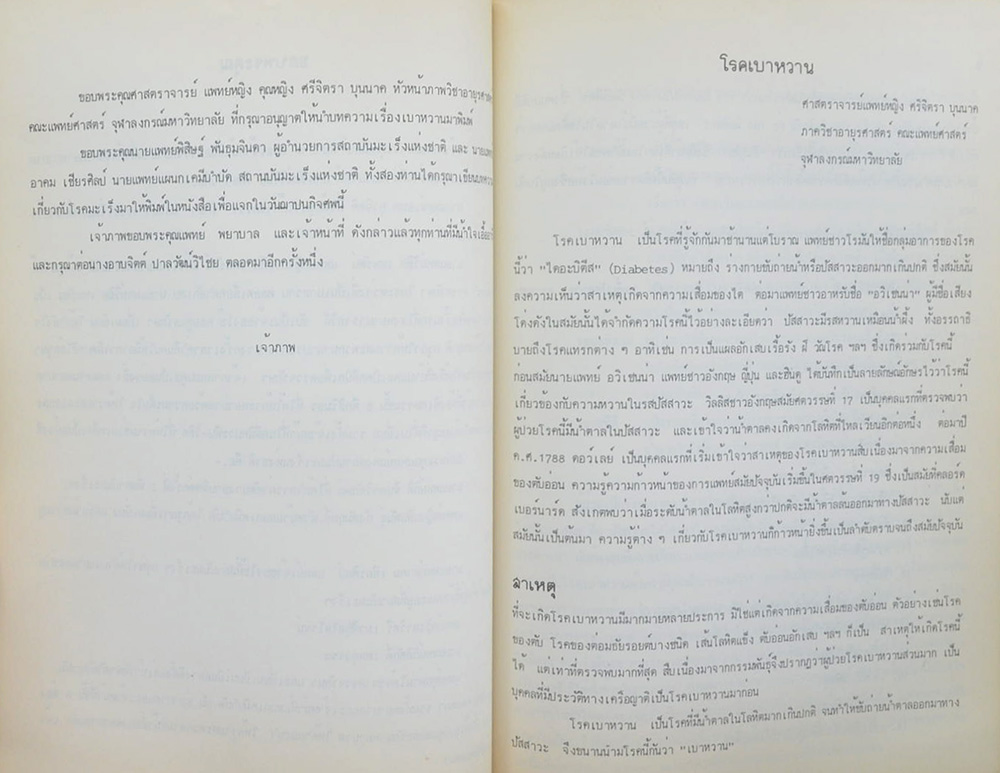 ขอบพระคุณศาสตราจารย์ แพทย์หญิง คุณหญิง ศรีจิตรา บุนนาค หัวหน้าภาควิชาอายุรศาส
คณะแพทย์ศาสตร์ จุฬาลงกรณ์มหาวิทยาลัย ที่กรุณาอนุญาตให้นำบทความเรื่องเบาหวานมาพิมพ์
ขอบพระคุณนายแพทย์พิสิษฐ์ พันธุมจินดา ผู้อำนวยการสถาบันมะเร็งแห่งชาติ และ นายแพ
อาคม เชียรศิลป์ นายแพทย์แผนกเคมีบำบัด สถานบันมะเร็งแห่งชาติ ทั้งสองท่านได้กรุณาเขียน
เกี่ยวกับโรคมะเร็งมาให้พิมพ์ในหนังสือเพื่อแจกในวันฌาปนกิจศพนี้
เจ้าภาพขอบพระคุณแพทย์ พยาบาล และเจ้าหน้าที่ ดังกล่าวแล้วทุกท่านที่มีน้ำใจ
และกรุณาต่อนางอาบจิตต์ ปาลวัฒน์วิไชย ตลอดมาอีกครั้งหนึ่ง
เจ้าภาพ
โรคเบาหวาน
ศาสตราจารย์แพทย์หญิง ศรีจิตรา บุนนาค
ภาควิชาอายุรศาสตร์ คณะแพทย์ศาสตร์
จุฬาลงกรณ์มหาวิทยาลัย
โรคเบาหวาน เป็นโรคที่รู้จักกันมาช้านานแต่โบราณ แพทย์ชาวโรมันให้ชื่อกลุ่มอาการของโรค
นี้ว่า "ไดอะบิตีส" (Diabetes) หมายถึง ร่างกายขับถ่ายน้ำหรือปัสสาวะออกมากเกินปกติ ซึ่งสมัยนั้น
ลงความเห็นว่าสาเหตุเกิดจากความเสื่อมของไต ต่อมาแพทย์ชาวอาหรับชื่อ "อวิเซนน่า" ผู้มีชื่อเสียง
โด่งดังในสมัยนั้นได้จำกัดความโรคนี้ไว้อย่างละเอียดว่า ปัสสาวะมีรสหวานเหมือนน้ำผึ้ง ทั้งอรรถาธิ
บายถึงโรคแทรกต่าง ๆ อาทิเช่น การเป็นแผลอักเสบเรื้อรัง ฝี วัณโรค ฯลฯ ซึ่งเกิดรวมกับโรคนี้
ก่อนสมัยนายแพทย์ อวิเซนน่า แพทย์ชาวอังกฤษ ญี่ปุ่น และฮินดู ได้บันทึกเป็นลายลักษณ์อักษรไว้ว่าโรคนี้
เกี่ยวข้องกับความหวานในรสปัสสาวะ วิลลิสชาวอังกฤษสมัยศตวรรษที่ 17 เป็นบุคคลแรกที่ตรวจพบว่า
ผู้ป่วยโรคนี้มีน้ำตาลในปัสสาวะ และเข้าใจว่าน้ำตาลคงเกิดจากโลหิตที่ไหลเวียนอีกต่อหนึ่ง ต่อมาปี
ค.ศ.1788 คอว์เลย์ เป็นบุคคลแรกที่เริ่มเข้าใจว่าสาเหตุของโรคเบาหวานสืบเนื่องมาจากความเสื่อม
ของตับอ่อน ความรู้ความก้าวหน้าของการแพทย์สมัยปัจจุบันเริ่มขึ้นในศตวรรษที่ 19 ซึ่งเป็นสมัยที่คลอร์ด
เบอร์นาร์ด สังเกตพบว่าเมื่อระดับน้ำตาลในโลหิตสูงกว่าปกติจะมีน้ำตาลล้นออกมาทางปัสสาวะ นับแต่
สมัยนั้นเป็นต้นมา ความรู้ต่าง ๆ เกี่ยวกับโรคเบาหวานก็ก้าวหน้ายิ่งขึ้นเป็นลำดับตราบจนถึงสมัยปัจจุบัน
สาเหตุ
ที่จะเกิดโรคเบาหวานมีมากมายหลายประการ มิใช่แต่เกิดจากความเสื่อมของตับอ่อน ตัวอย่างเช่นโรค
ของตับ โรคของต่อมธัยรอยด์บางชนิด เส้นโลหิตแข็ง ตับอ่อนอักเสบ ฯลฯ ก็เป็น สาเหตุให้เกิดโรคนี้
ได้ แต่เท่าที่ตรวจพบมากที่สุด สืบเนื่องมาจากกรรมพันธุ์จึงปรากฏว่าผู้ป่วยโรคเบาหวานส่วนมาก เป็น
บุคคลที่มีประวัติทางเครือญาติเป็นโรคเบาหวานมาก่อน
โรคเบาหวาน เป็นโรคที่มีน้ำตาลในโลหิตมากเกินปกติ จนทำให้ขับถ่ายน้ำตาลออกมาทาง
ปัสสาวะ จึงขนานนามโรคนี้กันว่า "เบาหวาน"